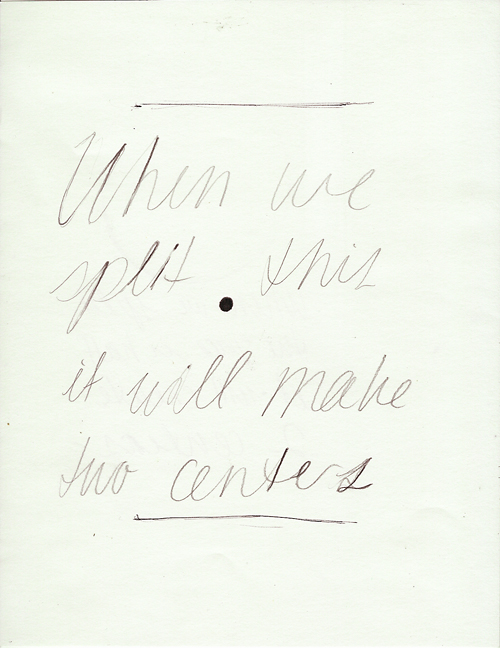 When we
split this
it will make
two centers